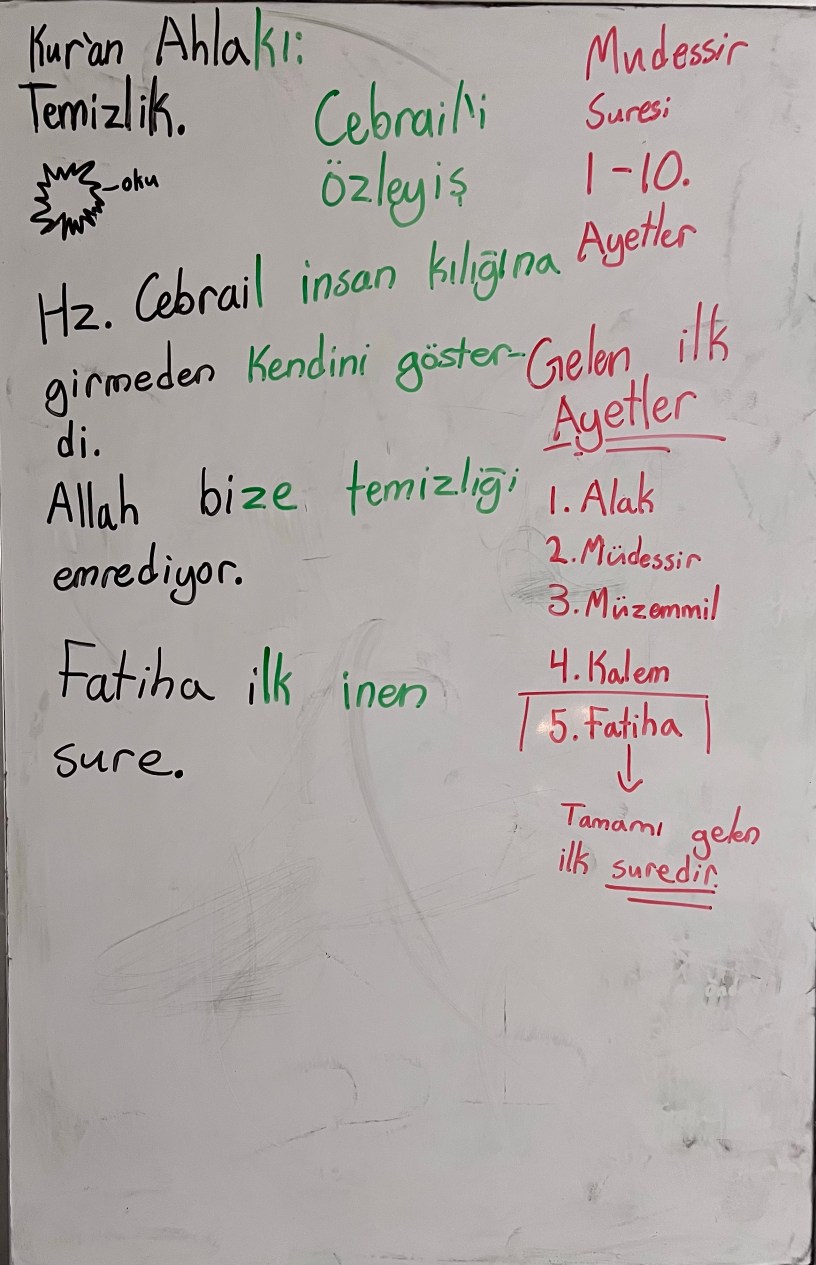 Kur'an Ahlakı:
Temizlik.
oku
Cebrail'i
Özleyiş
Hz. Cebrail insan kılığına
girmeden Kendini göster-
di.
Allah bize temizliği
emrediyor.
Fatiha ilk inen
sure.
Mudessir
Suresi
1-10.
Ayetler
Gelen ilk
Ayetler
1. Alak
2. Müdessir
3. Müzemmil
4. Kalem
5. Fatiha
Tamamı gelen
ilk suredir.